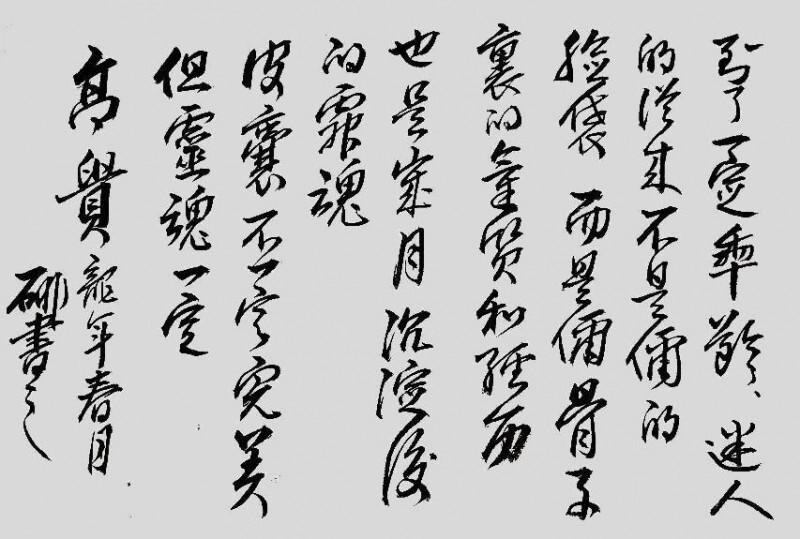 到了一定年齡、迷人
的從来不是你的
臉袋而是你骨子
裏的氣質和經历
也是歲月沉淀後
的靈魂
皮囊不一定完美
但靈魂一定
高貴
龍年春月
硼書之